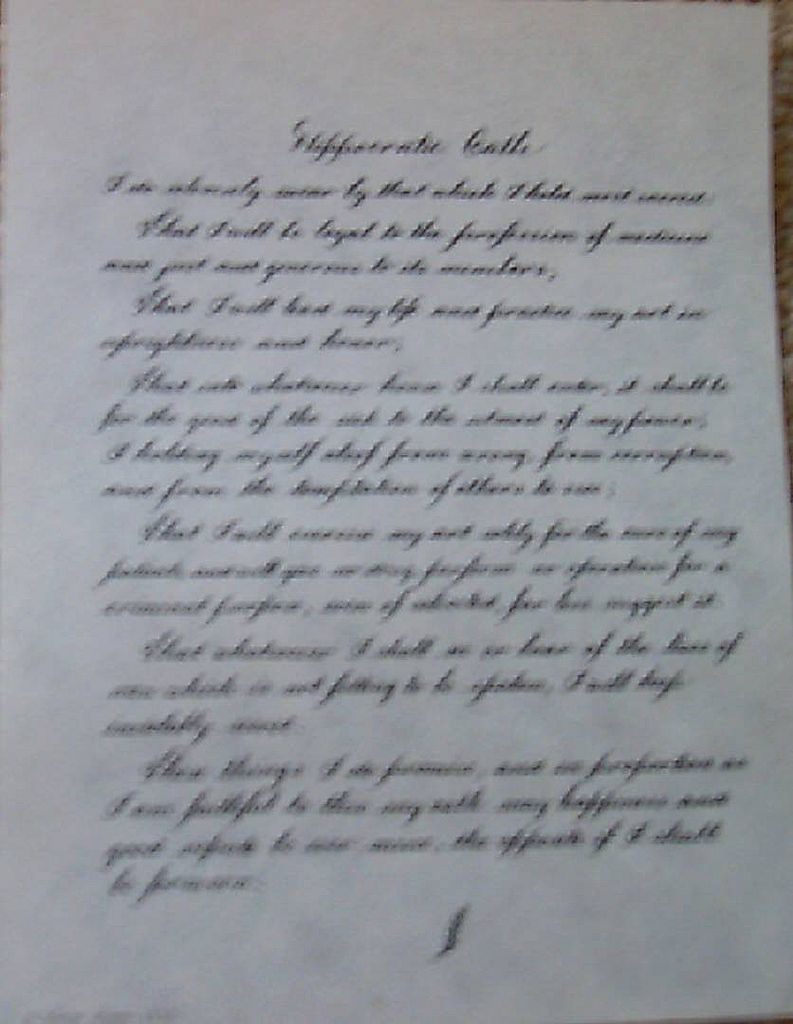 Hippocratic Oath
I do solemnly swear by that which I hold most sacred
That I will be loyal to the profession of medicine
and just and generous to its members,
That I will lead my life and practice my art in
uprightness and honor,
That into whatsoever house I shall enter, it shall be
for the good of the sick to the utmost of my power,
I holding myself aloof from wrong, from corruption,
and from the temptation of others to vice;
That I will exercise my art solely for the cure of my
patients and will give no drug, perform no operation for a
criminal purpose, even if solicited, far less suggest it
That whatsoever I shall see or hear of the lives of
men which is not fitting to be spoken, I will keep
inviolably secret
These things I do promise, and in proportion as
I am faithful to this my oath may happiness and
good repute be ever mine, the opposite if I shall
be forsworn